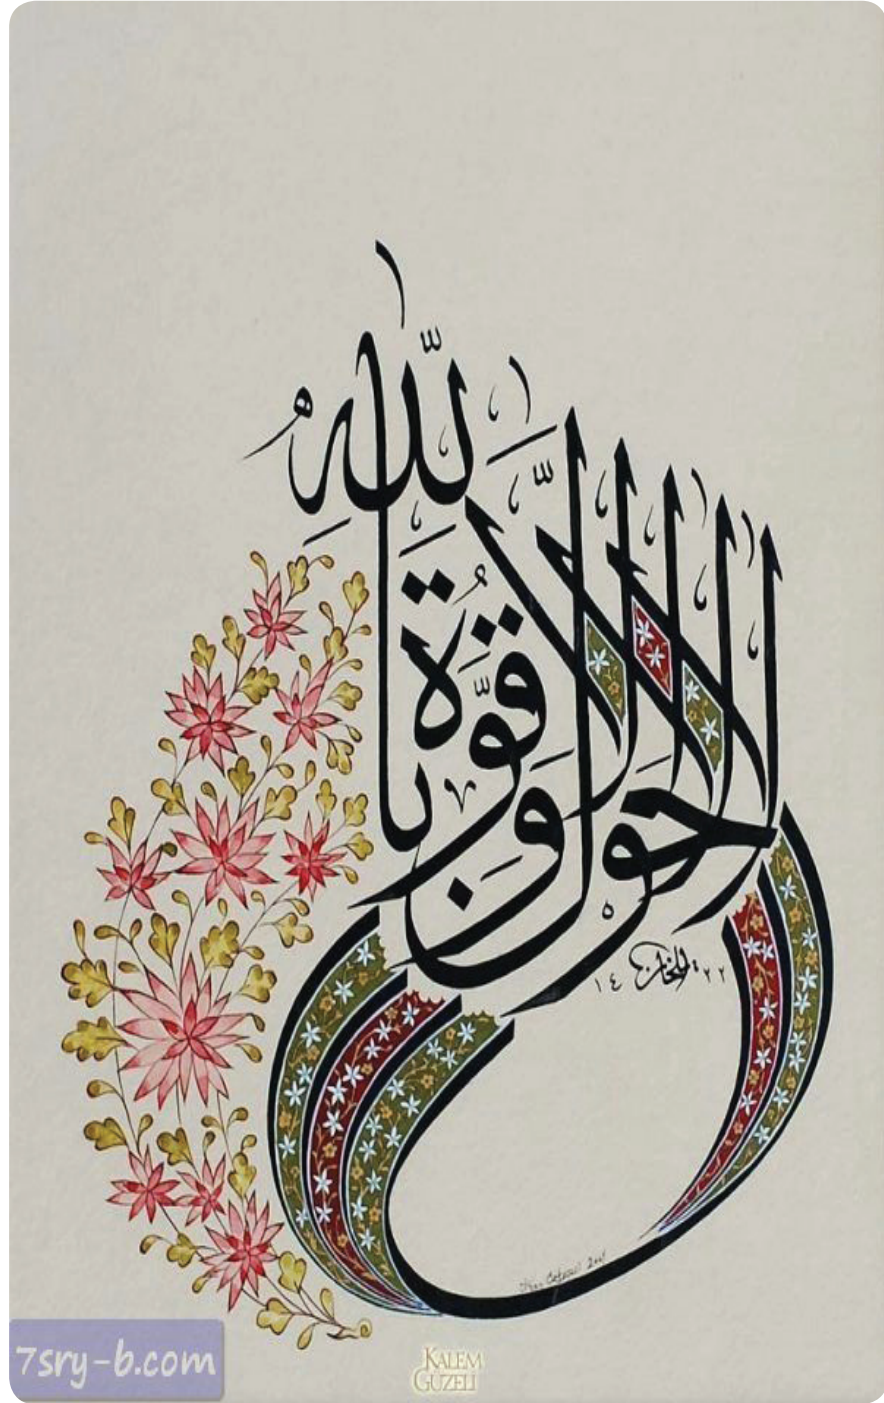 لَا حَوْلَ وَلَا قُوَّةَ إِلَّا بِاللّٰهِ
١٤٢٢
7sry-b.com
KALEM GÜZELİ